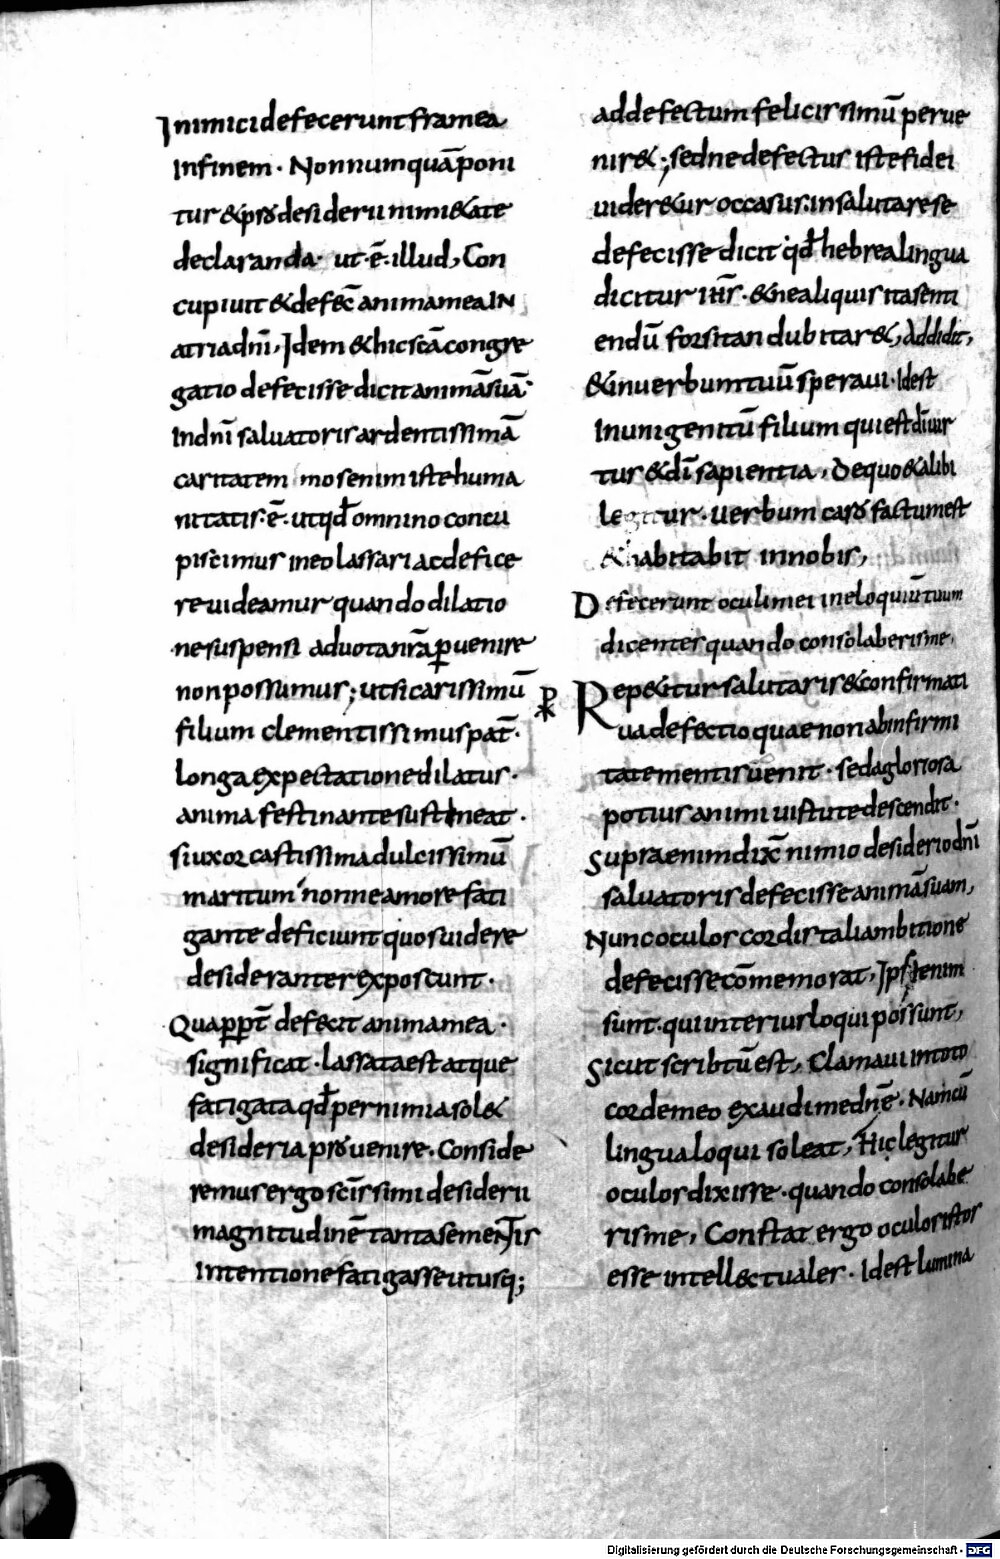 Inimici defecerunt framea
Infinem · Nonnumquā poni
tur & pro desiderii nimi&ate
declaranda · ut · ē · illud, Con
cupiuit & defeč anima mea IN
atria dnī, Idem & hic scā congre
gatio defecisse dicit animā suā ·
In dnī saluatoris ardentissimā
caritatem mos enim iste huma
nitatis · ē · ut qđ omnino concu
piscimus in eo lassari ac defice
re uideamur quando dilatio
ne suspensi ad uota nrā ꝑuenire
non possumus; ut si carissimū
filium clementissimus pat̄ ·
longa expectatione dilatus ·
anima festinante sustineat ·
si uxor castissima dulcissimū
maritum nonne amore fati
gante deficiunt quos uidere
desideranter exposcunt ·
Quaꝓpt̄ defecit anima mea ·
significat · lassata est atque
fatigata qđ per nimia sol&
desideria prouenire · Conside
remus ergo scīssimi desiderii
magnitudinē tanta se mentis
intentione fatigasse utusq;
ad defectum felicissimū perue
nir&; sed ne defectus iste fidei
uider&ur occasus · in salutare se
defecisse dicit qđ hebrea lingua
dicitur iħs · & ne aliquis ita senti
endū forsitan dubitar&, Addidit,
& in uerbum tuū speraui · Idest
In unigenitū filium qui est diuur
tur & dī sapientia, De quo & alibi
legitur · uerbum caro factum est
& habitabit in nobis,
Defecerunt oculi mei in eloquiū tuum
dicentes quando consolaberis me,
Rep&itur salutaris & confirmati
ua defectio quae non ab infirmi
tate mentis uenit · sed a gloriosa
potius animi uirtute descendit ·
Supra enim dix̄ nimio desiderio dnī
saluatoris defecisse animā suam,
Nunc oculos cordis tali ambitione
defecisse cōmemorat, Ipsi enim
sunt · qui interius loqui possunt,
Sicut scribtū est, Clamaui in toto
corde meo exaudi me dnē · Nam cū
lingua loqui soleat, Hic legitur
oculos dixisse · quando consolabe
ris me, Constat ergo oculos istos
esse intellectuales · Idest lumina
Digitalisierung gefördert durch die Deutsche Forschungsgemeinschaft - DFG